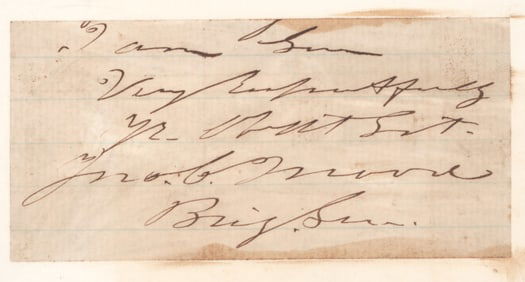 I am Gen
Very Respectfully
Yr. Obdt Svt.
Jno. C. Moore
Brig. Gen.